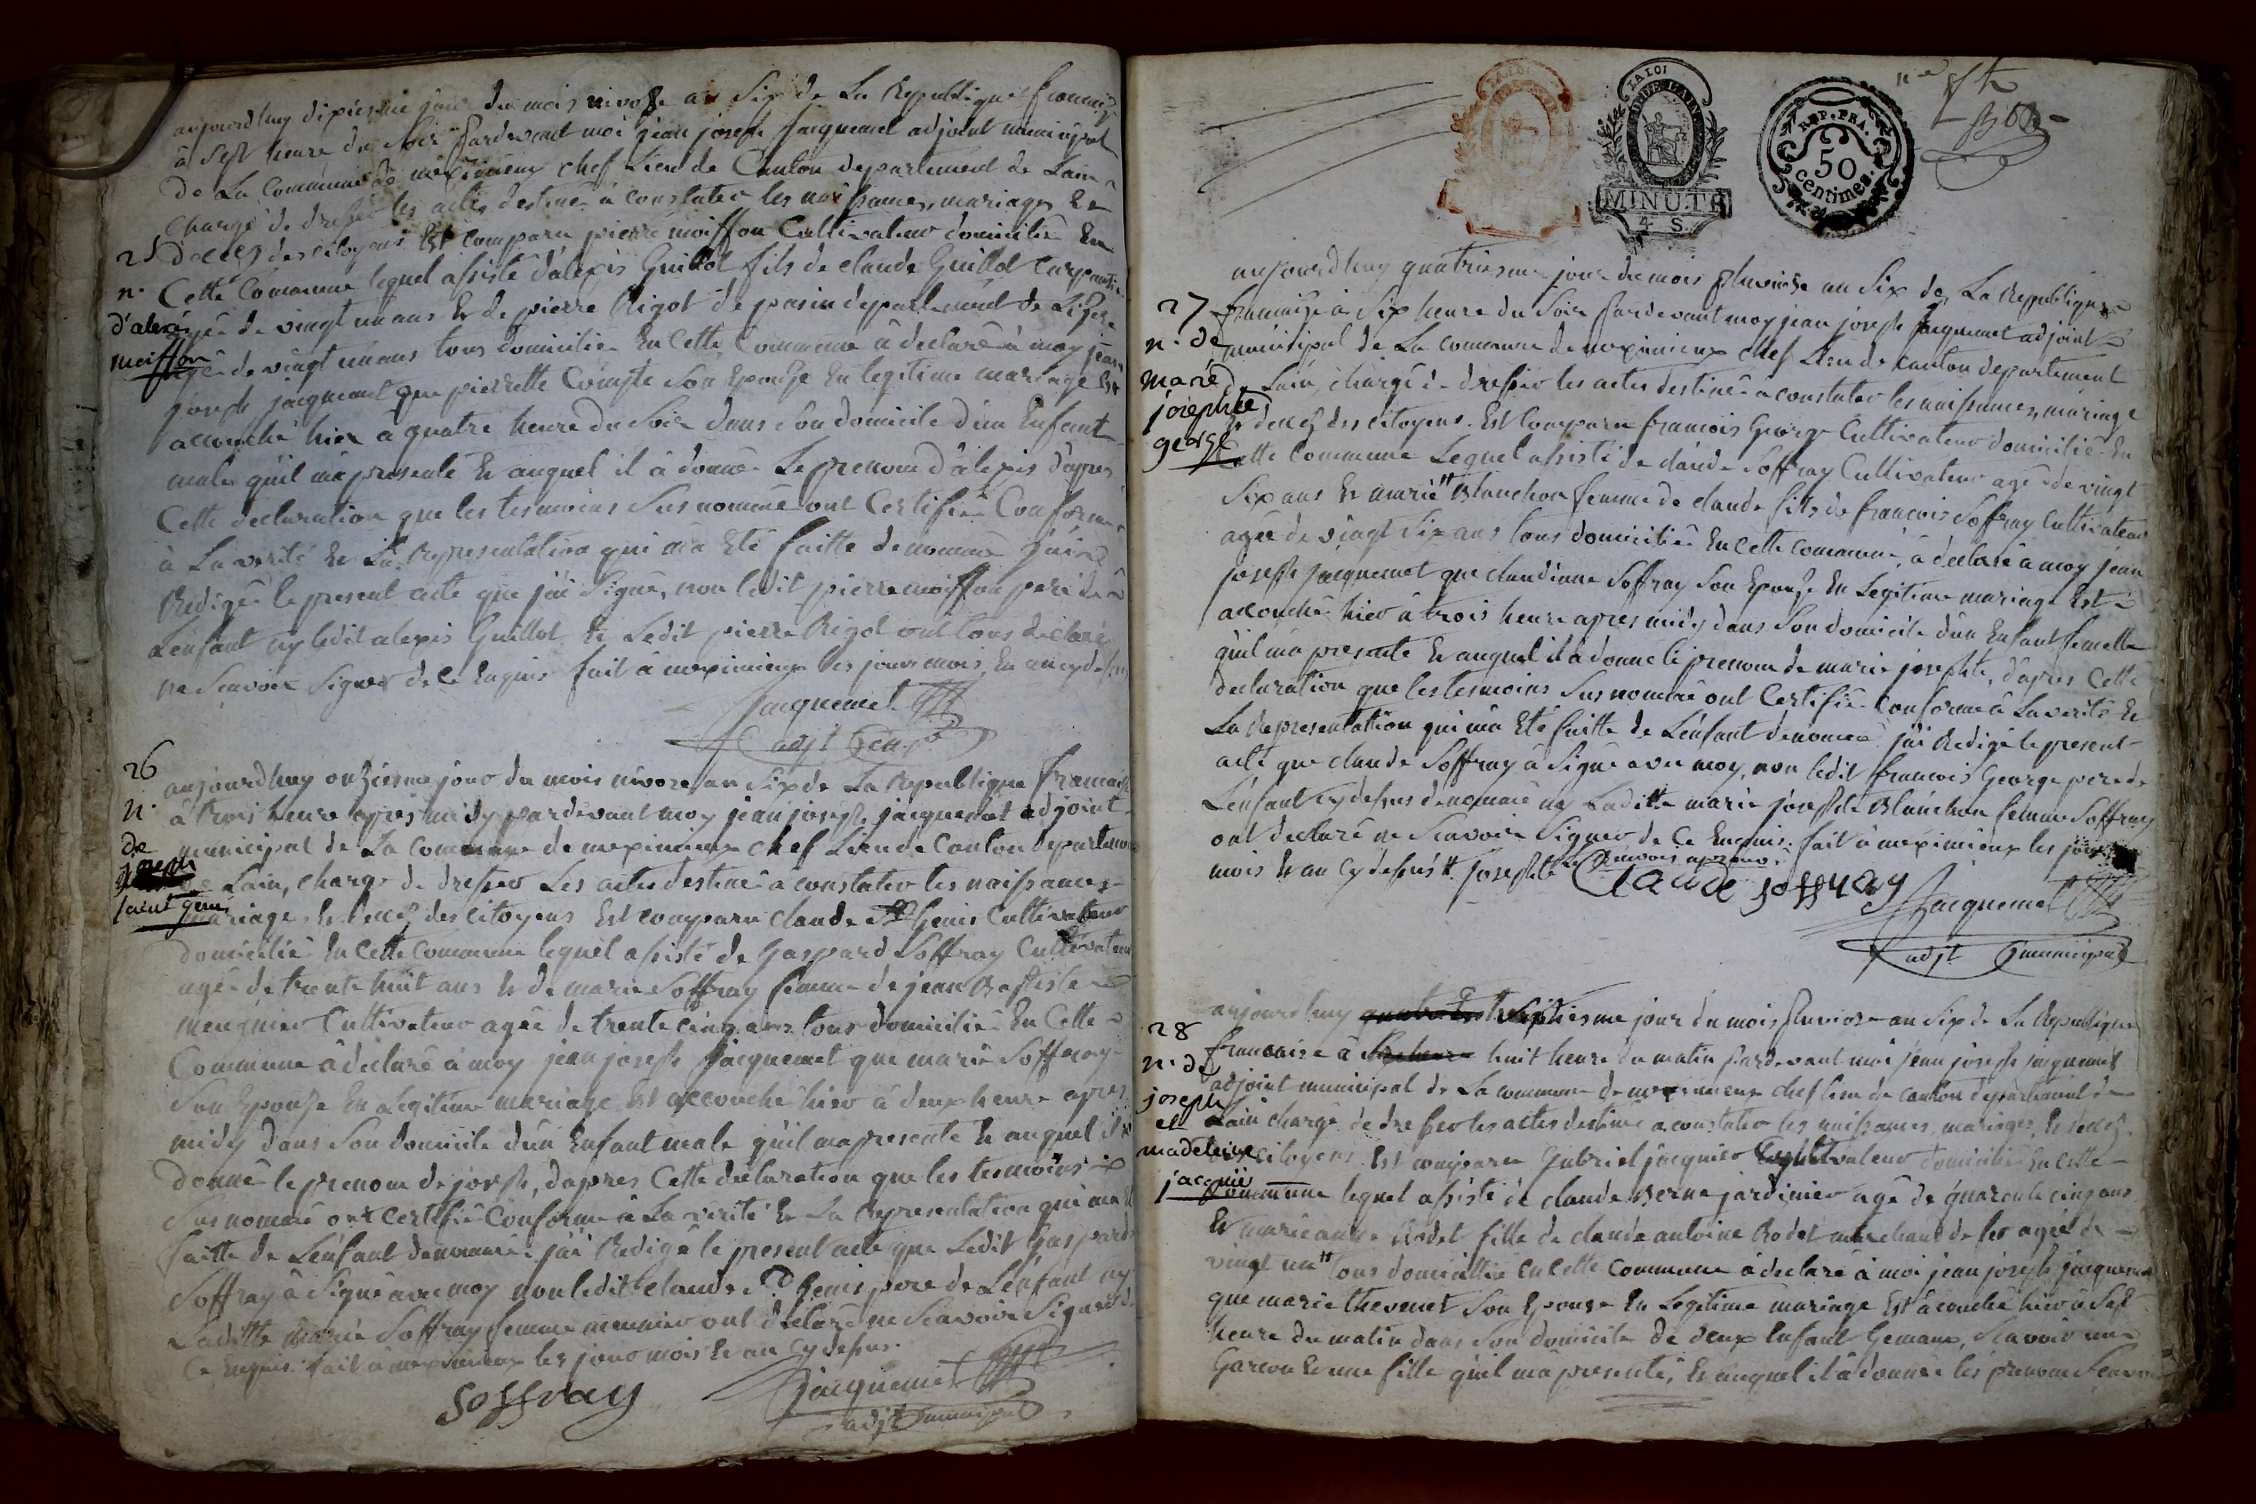 aujourdhuy dixiesme jour du mois nivose an Six de La Republique francaize
à Sept heure du Soir pardevant moi jean joseph jacquemet adjoint municipal
de La Commune de meximieux chef Lieu de Canton departement de Lain
chargé de dresser les actes destiné à constater les naissances, mariages Et
25 décès des citoyens Est comparu pierre moiffon Cultivateur domicilié En
n. Cette Commune lequel assisté d'alexis Guillot fils de claude Guillot Carpantier
d'alexis agée de vingt un ans Et de pierre Rigot de departement de
moiffon agée de vingt un ans tous domicilié En Cette Commune à declaré à moy jean
joseph jacquemet que pierrette Compte Son Epouze En legitime mariage Est
accouché hier à quatre heure du Soir dans Son domicile d'un Enfant
male qu'il m'a presenté Et auquel il à donné Le prenom d'alexis d'apres
Cette declaration que les tesmoins Sus nommé ont Certifié Conforme
à La verité Et La Representation qui m'a Eté faitte denommé j'ai
Redigé le present acte que j'ai Signé, non ledit pierre moiffon pere de
L'enfant ny ledit alexis Guillot Et Ledit pierre Rigot ont tous declaré
ne Scavoir Signer de Ce Enquis fait à meximieux les jour mois Et an cy dessus
Jacquemet
adjt
26 aujourdhuy onziesme jour du mois nivoze an Six de La Republique francaise
n. à trois heure apres midy pardevant moy jean joseph jacquemet adjoint
de municipal de La Commune de meximieux chef Lieu de Canton departement
joseph de Lain, chargé de dresser Les actes destiné à constater les naissances
saint genis mariages Et décès des citoyens Est comparu claude St Genis Cultivateur
domicilié En Cette Commune lequel assisté de Gaspard Soffray Cultivateur
agée de trente huit ans Et de marie Soffray femme de jean Baptiste
meunier Cultivateur agée de trente cinq ans tous domicilié En Cette
Commune à declaré à moy jean joseph jacquemet que marie Soffray
Son Epouse En Legitime mariage Est accouché hier à deux heure apres
midy dans Son domicile d'un Enfant male qu'il m'a presenté Et auquel il à
donné le prenom de joseph, d'apres Cette declaration que les tesmoins
Sus nommé ont Certifié Conforme à La verité Et La Representation qui m'a Eté
faitte de L'enfant denommé j'ai Redigé le present acte que Ledit Gaspard
Soffray à Signé avec moy non ledit Claude St Genis pere de L'enfant ny
Laditte Marie Soffray femme meunier ont declaré ne Scavoir Signer de
Ce Enquis. fait à meximieux les jour mois Et an Cy dessus.
Soffray Jacquemet
adjt municipal
LA LOI
LA LOI
MINUTE
4 S
REP. FRA.
50
centimes.
aujourdhuy quatriesme jour du mois pluviose an Six de La Republique
27 francaize à Six heure du Soir pardevant moy jean joseph jacquemet adjoint
n. de municipal de La commune de meximieux chef Lieu de canton departement
marie de Lain, chargé de dresser les actes destiné à constater les naissances, mariage
josephte Et décès des citoyens. Est Comparu francois George Cultivateur domicilié En
george Cette Commune Lequel assisté de claude Soffray Cultivateur agé de vingt
Six ans Et marie Blanchon femme de claude fils de francois Soffray Cultivateur
agée de vingt Six ans tous domicilié En Cette Commune, à declaré à moy jean
joseph jacquemet que claudine Soffray Son Epouze En Legitime mariage Est
accouché hier à trois heure apres midy dans Son domicile d'un Enfant femelle
qu'il m'a presenté Et auquel il a donné le prenom de marie josephte, d'apres Cette
declaration que les tesmoins Sus nommé ont Certifié Conforme à La verité Et
La Representation qui m'a Eté faitte de L'enfant denommé j'ai Redigé le present
acte que claude Soffray à Signé avec moy, non ledit francois George pere de
L'enfant Cy dessus denommé ny Laditte marie josephte Blanchon femme Soffray
ont declaré ne Scavoir Signer de Ce Enquis. fait à meximieux les jour
mois Et an Cy dessus # josephte renvois aprouvé
Claude soffray
Jacquemet
adjt municipal
aujourdhuy septiesme jour du mois pluviose an Six de La Republique
28 francaise à huit heure du matin pardevant moi jean joseph jacquemet
n. de adjoint municipal de La commune de meximieux chef lieu de canton departement de
joseph Lain chargé de dresser les actes destiné à constater les naissances, mariages, Et décès
et
madeleine des citoyens Est comparu Gabriel jacquier Cultivateur domicilié En Cette
jacquié Commune lequel assisté de claude Berne jardinier agé de quarente cinq ans
Et marie anne Rodet fille de claude antoine Rodet marchand de fer agée de
vingt un # tous domicillié En Cette Commune à declaré à moi jean joseph jacquemet
que marie thevenet Son Epouse En Legitime mariage Est àcouché hier à Sept
heure du matin dans Son domicile de deux Enfant Gemaux, Scavoir un
Garcon Et une fille qu'il m'a presenté, Et auquel il à donné les prenom Scavoir